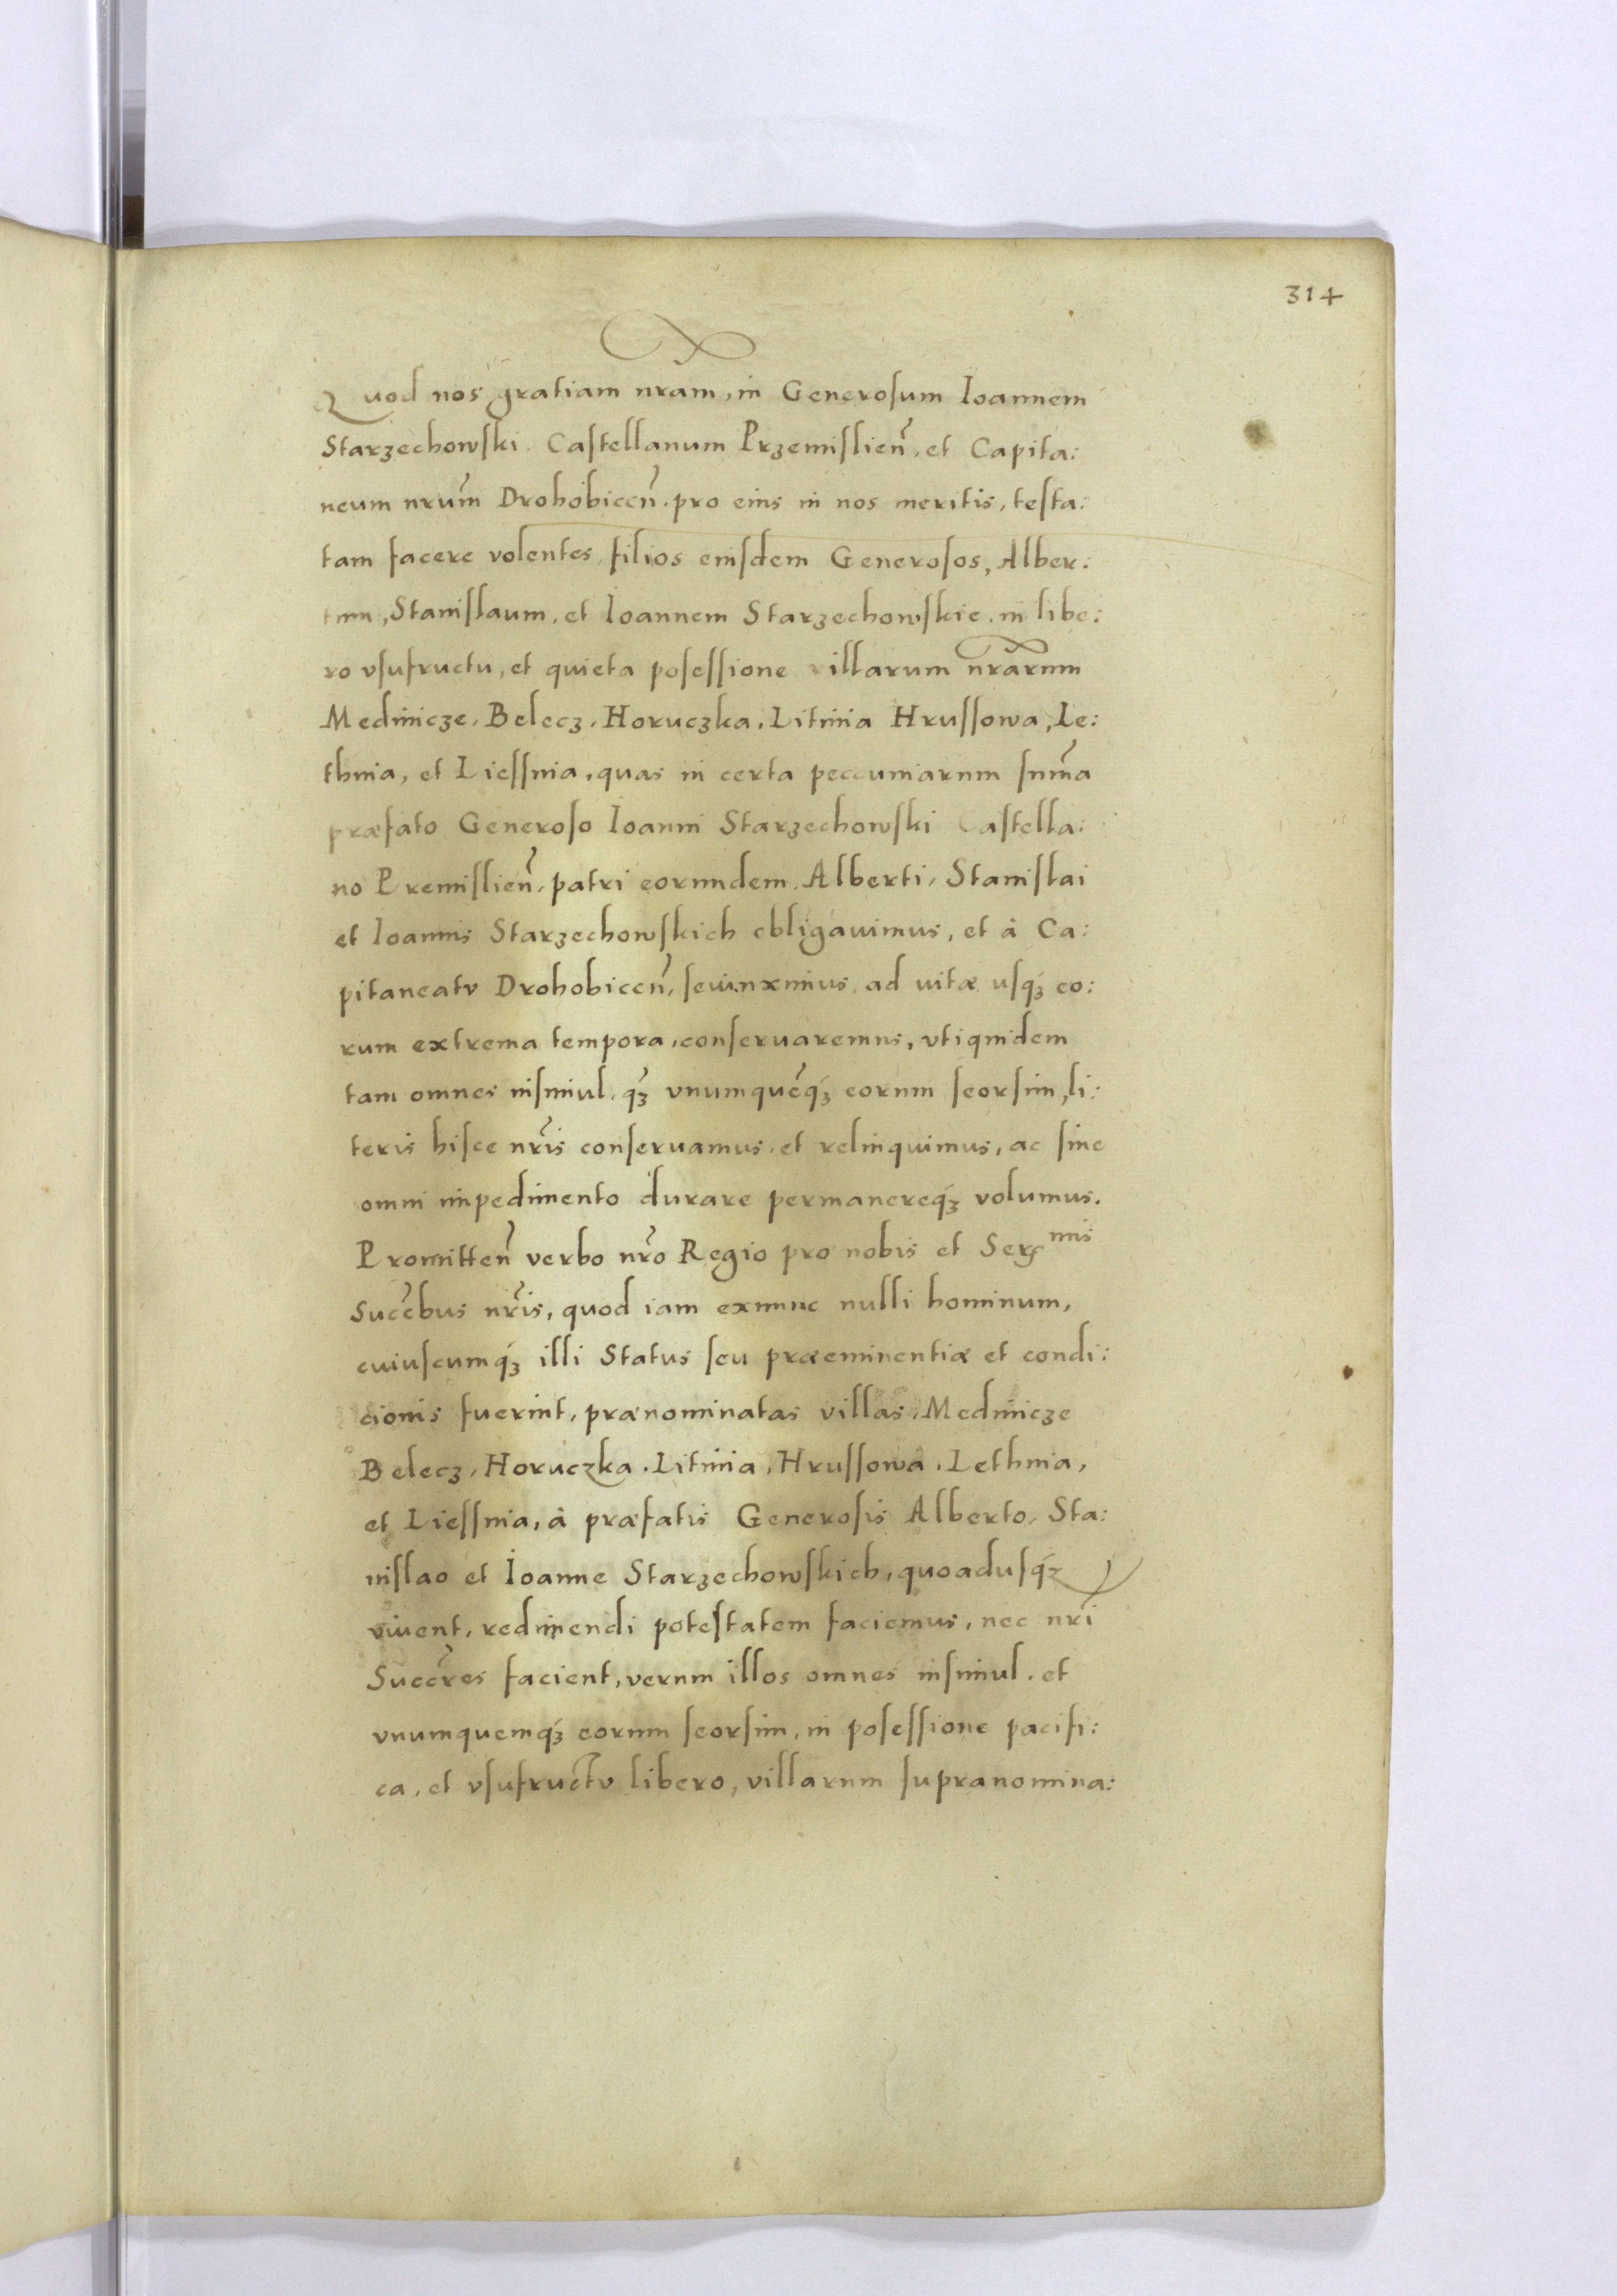 314
Quod nos gratiam nr̃am, in Generosum Ioannem
Starzechowski. Castellanum Przemislień. et Capita:
neum nrũm Drohobicceñ. pro eius in nos meritis, testa:
tam facere volentes, filios eiusdem Generosos, Alber:
tum, Stanislaum, et Ioannem Starzechowskie, in libe:
ro vsufructu, et quieta posessione villarum nrãrum
Medinicze, Belecz, Horuczka, Litinia Hrussowa, Le:
thnia, et Liessnia, quas in certa peccuniarum sum̃a
præfato Generoso Ioanni Starzechowski Castella:
no Premislień, patri eorundem Alberti, Stanislai
et Ioannis Starzechowskich obligauimus, et à Ca:
pitaneatv Drohobicceñ, seiunximus, ad uitæ usqꝫ eo:
rum extrema tempora, conseruaremus, vtiquidem
tam omnes insimul, qꝫ̃ vnumquẽqꝫ eorum seorsim, li:
teris hisce nr̃is conseruamus, et relinquimus, ac sine
omni impedimento durare permanereqꝫ volumus.
Promitteñ verbo nr̃o Regio pro nobis et Ser^mis
Succ̃bus nr̃is, quod iam exnunc nulli hominum,
cuiuscumqꝫ illi Status seu præeminentiæ et condi:
cionis fuerint, prænominatas villas, Medinicze
Belecz, Horuczka, Litinia, Hrussowa, Lethnia,
et Liessnia, à præfatis Generosis Alberto, Sta:
nislao et Ioanne Starzechowskich, quoadusqꝫ
viuent, redimendi potestatem faciemus, nec nr̃i
Succr̃es facient, verum illos omnes insimul, et
vnumquemqꝫ eorum seorsim, in posessione pacifi:
ca, et vsufructv libero, villarum supranomina: